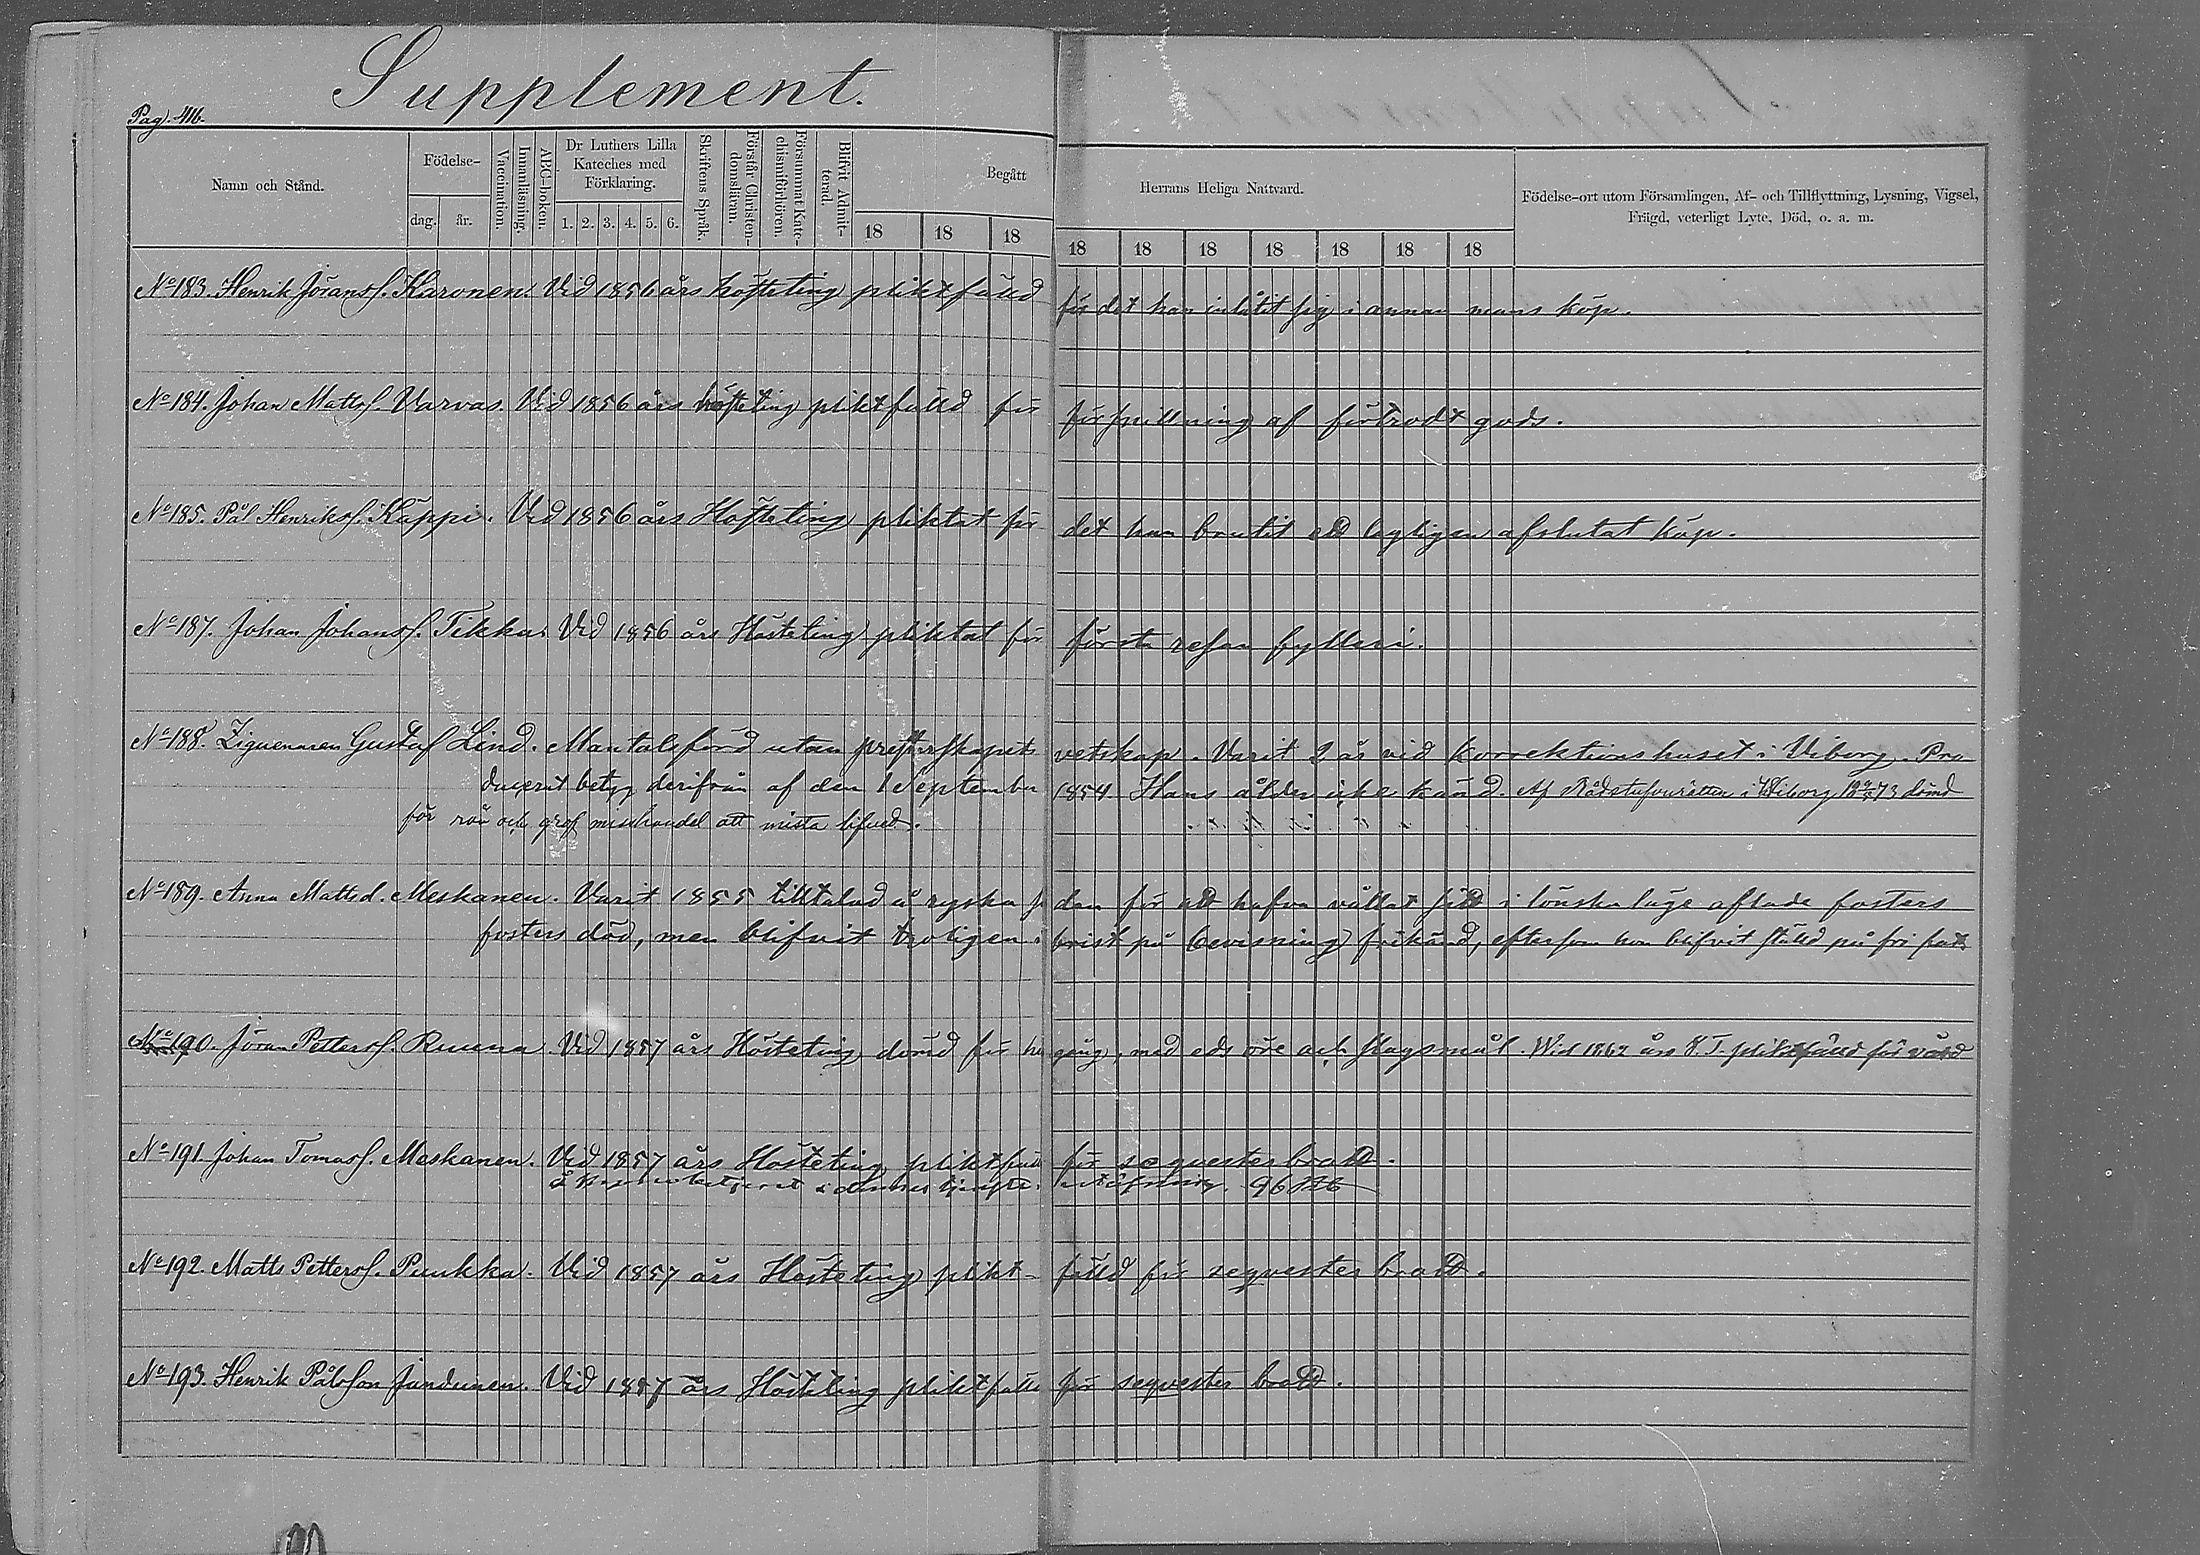 Supplement.
Pag. 416.
Namn och Stånd.
Födelse-
dag.
år.
Vaccination.
Innanläsning.
ABC-boken.
Dr Luthers Lilla
Kateches med
Förklaring.
1. 2. 3. 4. 5. 6.
Skriftens Språk.
Förstår Christen-
domsläran.
Försummat Kate-
chismiförhören.
Blifvit Admit-
terad.
Begått
Herrans Heliga Nattvard.
18 18 18 18 18 18 18 18 18 18
Födelse-ort utom Församlingen, Af- och Tillflyttning, Lysning, Vigsel,
Frägd, veterligt Lyte, Död, o. a. m.
No 183. Henrik Jöranss. Karonen. Vid 1856 års hösteting pliktfälld för det han inlåtit sig i annan mans köp.
No 184. Johan Mattss. Varvas. Vid 1856 års hösteting pliktfälld för förspillning af förtrodt gods.
No 185. Pål Henrikss. Käppi. Vid 1856 års Hösteting pliktat för det han brutit ett lagligen afslutat köp.
No 187. Johan Johanss. Tikka. Vid 1856 års Hösteting pliktat för första resan fylleri.
No 188. Ziguenaren Gustaf Lind. Mantalsförd utan presterskapets vetskap. Varit 2 år vid korrektionshuset i Viborg. Pro-
ducerat betyg derifrån af den 1 September 1854. Hans ålder icke känd. Af Rådstufvurätten i Wiborg 73 dömd
för rån och grof misshandel att mista lifvet.
No 189. Anna Mattsd. Meskanen. Varit 1855 tilltalad å ryska för att hafva vållat sitt i lönska läge aflade fosters
fosters död, men blifvit troligen i brist på bevisning frikänd, eftersom hon blifvit ställd på fri fot.
No 190. Jöran Petterss. Ruuna. Vid 1857 års Hösteting dömd för med eds öre och slagsmål. Wid 1862 års V.T. pliktfälld för våld
No 191. Johan Tomass. Meskanen. Vid 1857 års Hösteting pliktfälld för seqvesterbrott.
No 192. Matts Petterss. Puukka. Vid 1857 års Hösteting plikt- fälld för seqvester brott.
No 193. Henrik Pålsson Jundunen. Vid 1857 års Hösteting pliktfälld för seqvester brott.